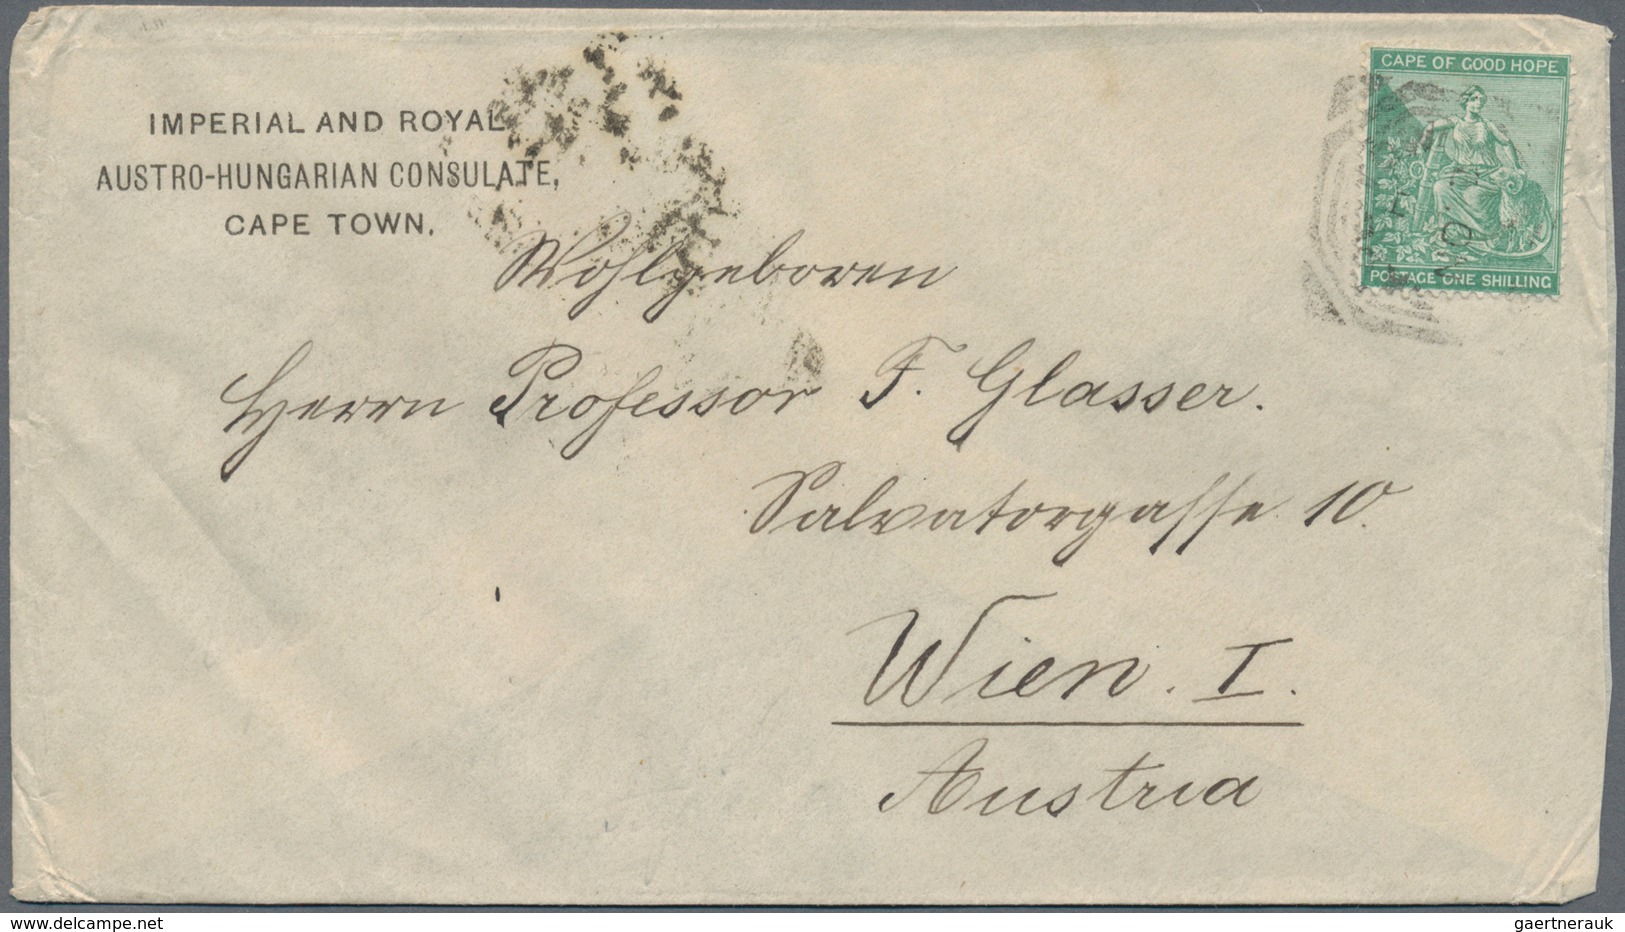 IMPERIAL AND ROYAL
AUSTRO-HUNGARIAN CONSULATE,
CAPE TOWN.
CAPE OF GOOD HOPE
POSTAGE ONE SHILLING
Wohlgeboren
Herrn Professor F. Glasser.
Salvatorgasse 10.
Wien. I.
Austria
gaertnerauk